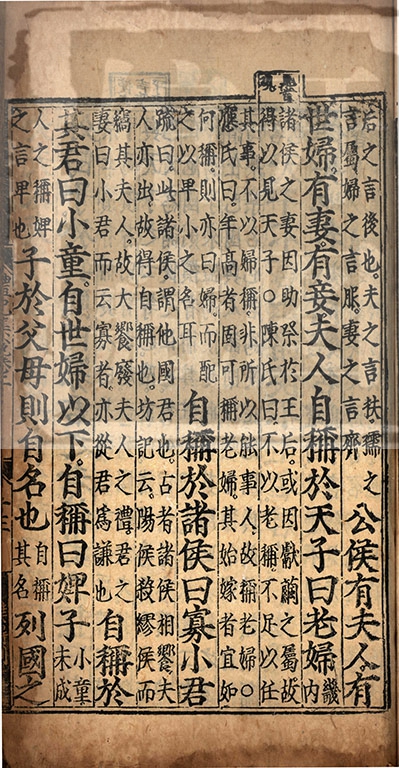 后之言後也。夫之言扶。孺之
言屬。婦之言服。妻之言齊
公侯有夫人。有
世婦。有妻。有妾。夫人自稱於天子曰老婦
畿
內
諸侯之妻因助祭於王后。或因獻繭之屬。故
得以見天子○陳氏曰。不以老稱不足以任
其事。不以婦稱。非所以能事人。故稱老婦○
應氏曰。年高者固可稱老婦。其始嫁者宜如
何稱。則亦曰婦。而配
之以卑小之名耳
自稱於諸侯曰寡小君
疏曰。此諸侯謂他國君也。古者諸侯相饗。夫
人亦出。故得自稱也。坊記云。陽侯殺繆侯而
竊其夫人。故大饗廢夫人之禮。君之
妻曰小君而云寡者。亦從君爲謙也
自稱於
其君曰小童。自世婦以下。自稱曰婢子
小童
未成
人之稱婢
之言卑也
子於父母則自名也
自稱
其名
列國之